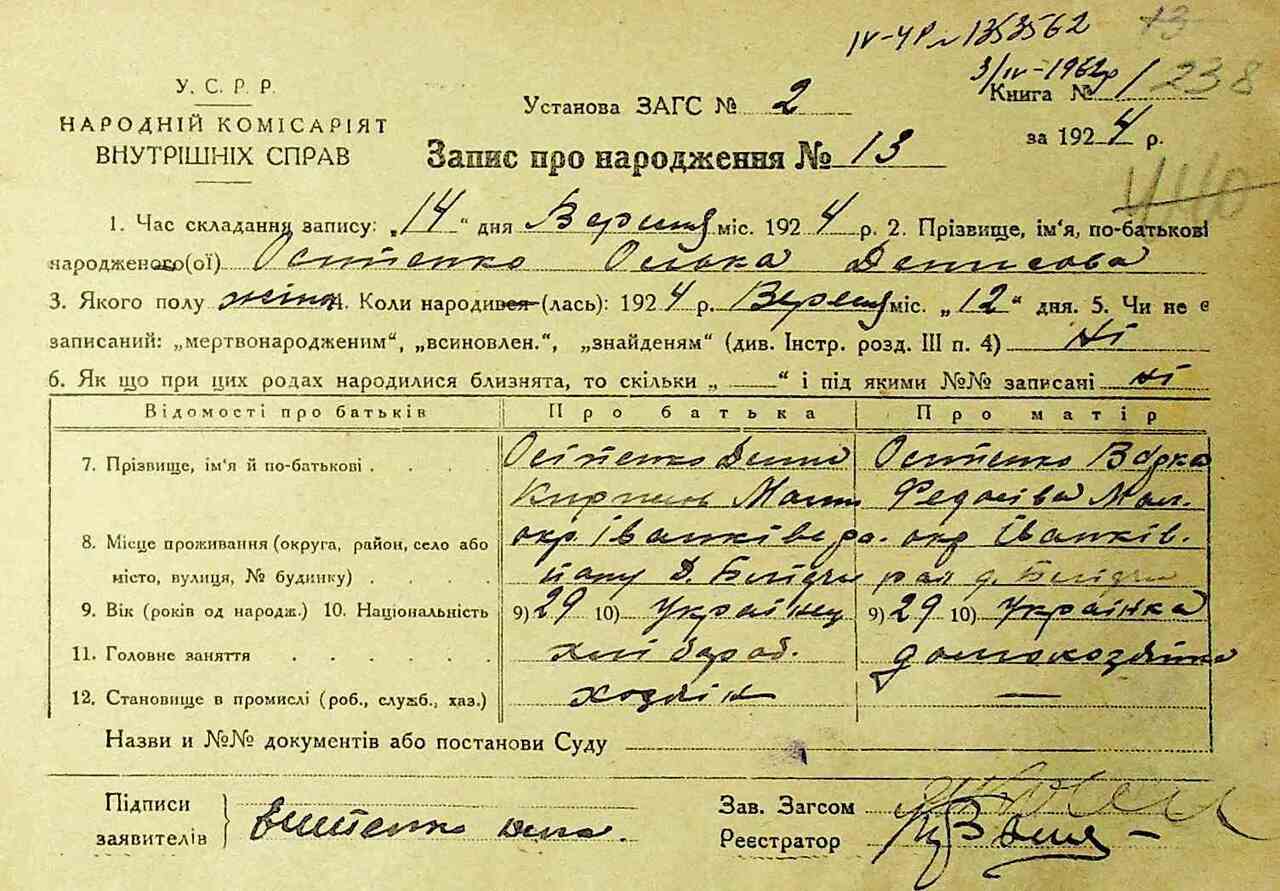 IV-ЧР № 1353562
3/IV-1962р
238
У. С. Р. Р.
НАРОДНІЙ КОМІСАРІЯТ
ВНУТРІШНІХ СПРАВ
Установа ЗАГС № 2
Книга № 1
за 1924 р.
Запис про народження № 13
1. Час складання запису: „14“ дня Вересня міс. 1924 р. 2. Прізвище, ім'я, по-батькові
народженого(ої) Осипенко Олька Денисова
3. Якого полу жіно 4. Коли народився (лась): 1924 р. Вересня міс. „12“ дня. 5. Чи не є
записаний: „мертвонародженим“, „всиновлен.“, „знайденям“ (див. Інстр. розд. III п. 4) Ні
6. Як що при цих родах народилися близнята, то скільки „ “ і під якими №№ записані ні
Відомості про батьків Про батька Про матір
7. Прізвище, ім'я й по-батькові . . . . Осипенко Осипенко Варка
Федосіва Мал.
8. Місце проживання (округа, район, село або окр. Іванківс ра. окр Іванків.
місто, вулиця, № будинку) . . . . йону Д. рай д.
9. Вік (років од народж.) 10. Національність 9) 29 10) Українец 9) 29 10) Українка
11. Головне заняття . . . . . . хлібороб. домохозяйка
12. Становище в промислі (роб., служб., хаз.) хозяін —
Назви и №№ документів або постанови Суду
Підписи
заявителів
Зав. Загсом
Реєстратор